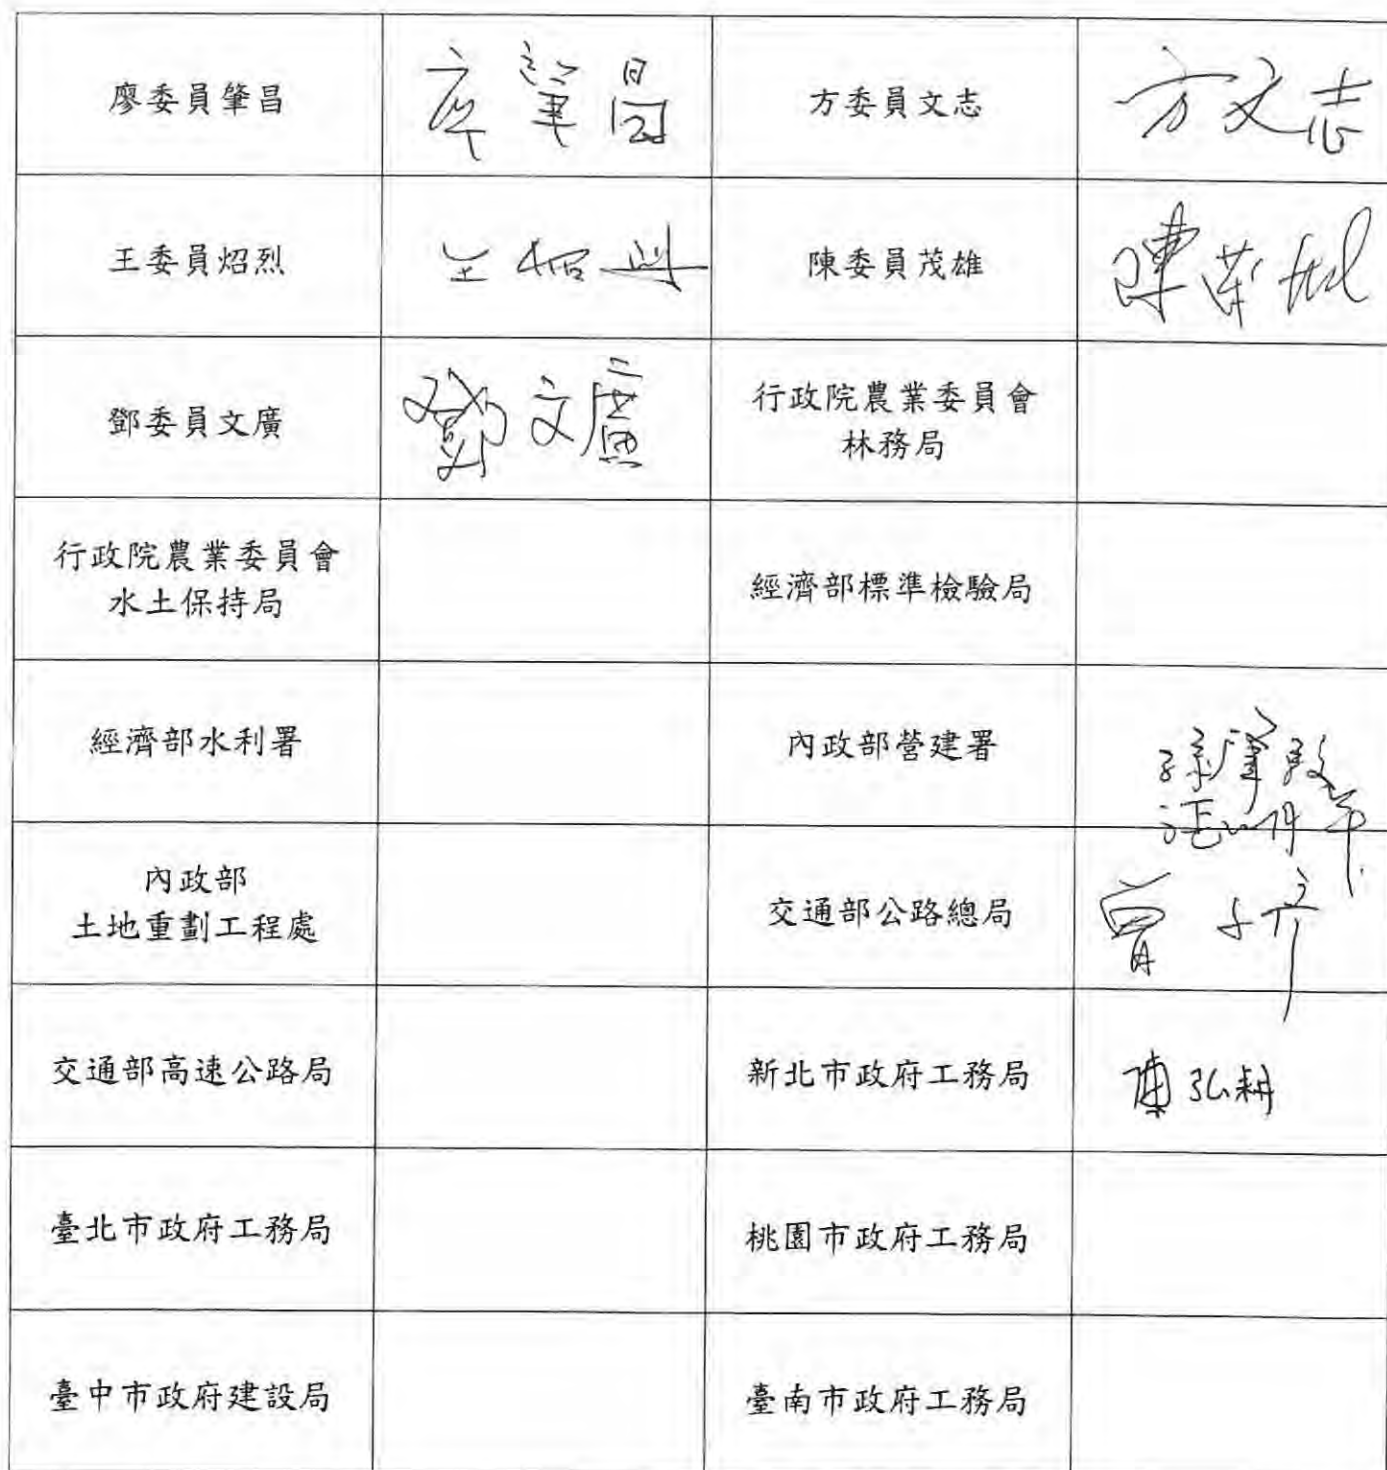 廖委員肇昌 廖肇昌 方委員文志 方文志
王委員炤烈 王炤烈 陳委員茂雄 陳茂雄
鄧委員文廣 鄧文廣 行政院農業委員會
林務局
行政院農業委員會
水土保持局 經濟部標準檢驗局
經濟部水利署 內政部營建署
內政部
土地重劃工程處 交通部公路總局
交通部高速公路局 新北市政府工務局 陳弘耕
臺北市政府工務局 桃園市政府工務局
臺中市政府建設局 臺南市政府工務局